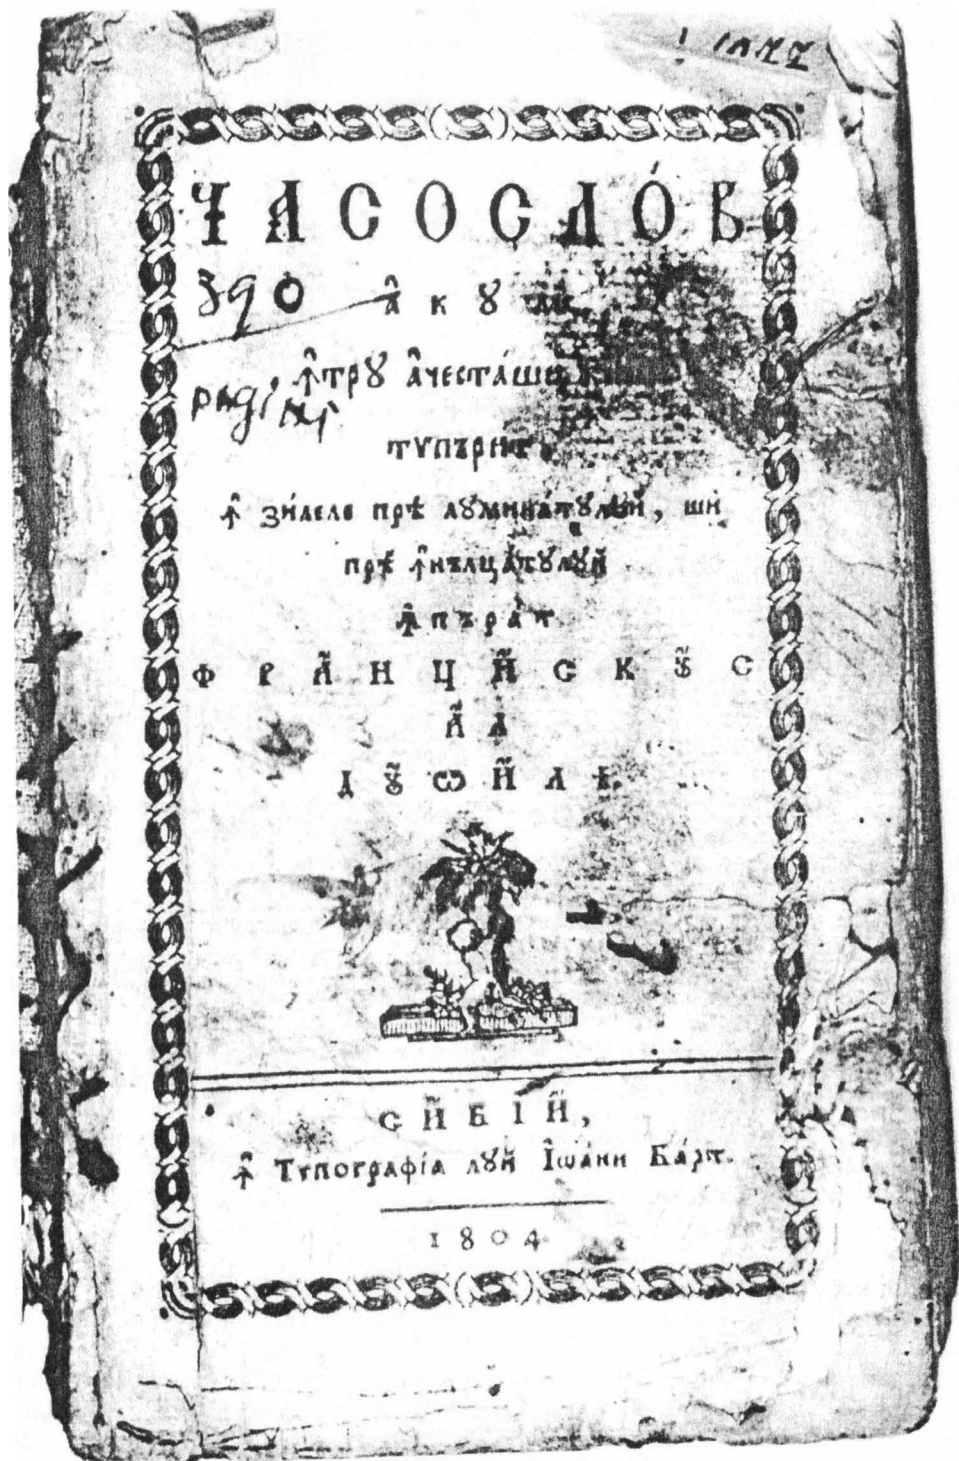 ЧАСОСЛО́В
А҆КꙋМ
ꙟ҆трꙋ а҆честа́шй
типъри́т
ꙟ҆ зи́леле прѣ лꙋмина́тꙋлꙋй, ши
прѣ ꙟ҆нълца́тꙋлꙋй
ꙟ҆пърат
ФРА҆́НЦИ҆́СКꙋ҆́С
А҆́Л
Дꙋ҆́ѠИ҆́ЛѢ
СИ҆́БІИ҆́,
ꙟ҆ Тѷпографі́а лꙋй І҆ѡа́нн Ба́рт.
1804
390